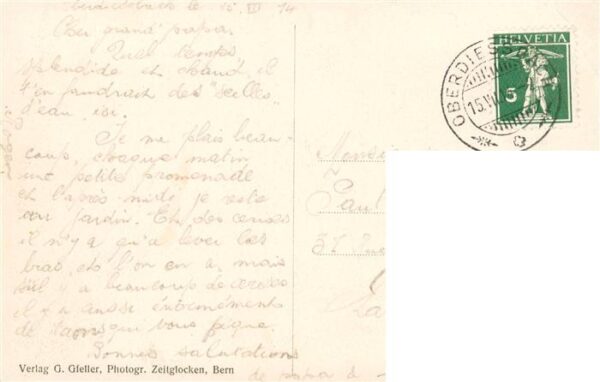 le 15 VII 14
Cher grand'papa.
Quel temps
splendide et chaud, il
t'en faudrait des "seilles"
d'eau, ici.
Je me plais beau-
coup, chaque matin
une petite promenade
et l'après-midi je reste
au jardin. Et des cerises
il n'y a qu'à lever les
bras, et l'on en a, mais
s'il y a beaucoup de cerises
il y a aussi énormément
de taons qui vous pique.
Bonnes salutations
de
Monsieur
Paul
37 Rue
La
HELVETIA
5
OBERDIESSB
15.VII
Verlag G. Gfeller, Photogr. Zeitglocken, Bern